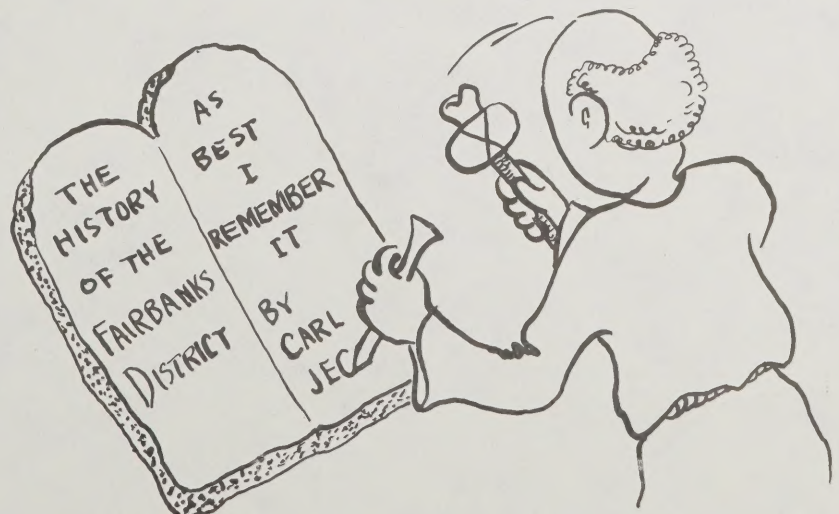 THE
HISTORY
OF THE
FAIRBANKS
DISTRICT
AS
BEST
I
REMEMBER
IT
BY
CARL
JEC